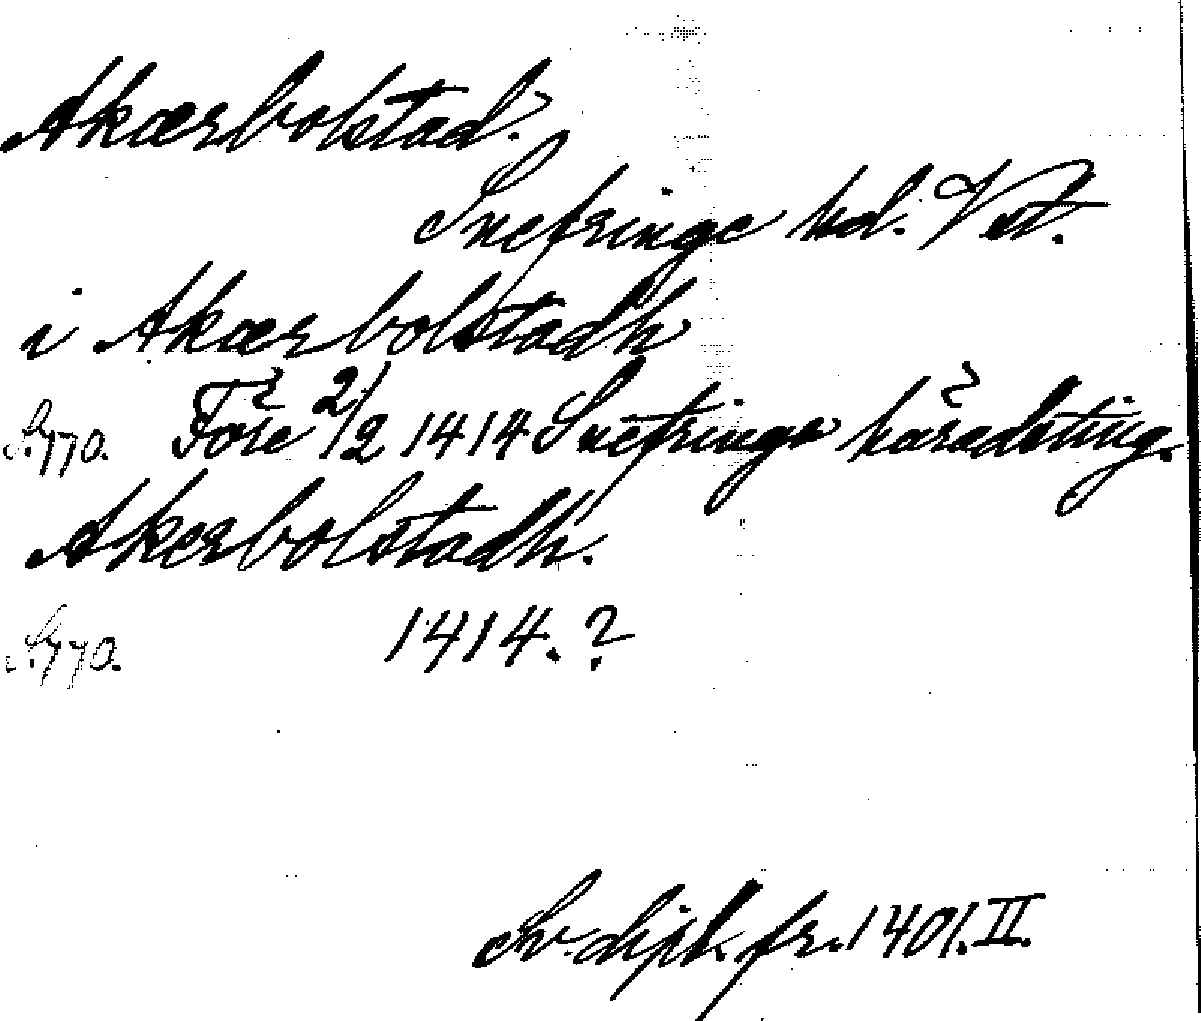 Akærbolstad.
Snefringe hd. Vst.
i Akærbolstadh
S. 770. Före 2/2 1414 Snefringe häradsting.
Akerbolstadh.
S. 770. 1414. ?
Sv. dipl. fr. 1401. II.